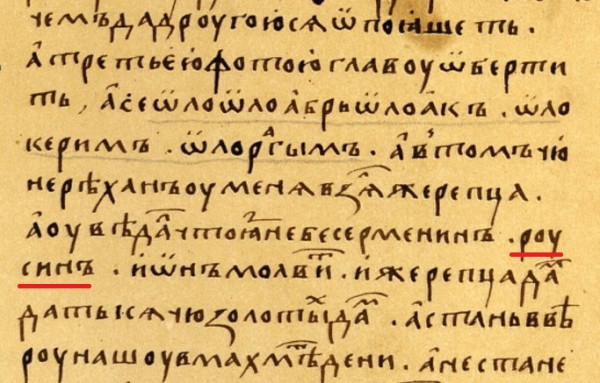 чемъ да дроугою ся ѿпоꙗшеть.
а третьею фотою главоу ѿберти
ть, а се ѿло ѿло абрь ѿло акъ. ѿло
керимъ. ѿлорагымъ. а в томъ чю
нерѣ ханъ оу меня взѧⷧ жерепца.
а оувѣдаⷧ что ꙗⷥ не бесерменинъ. роу
синъ. и ѡнъ молвиⷮ. и жерепца даⷨ
да тысячю золотыⷯ даⷨ. а стань в вѣ
роу нашоу в махмеⷮ дени. а не стане